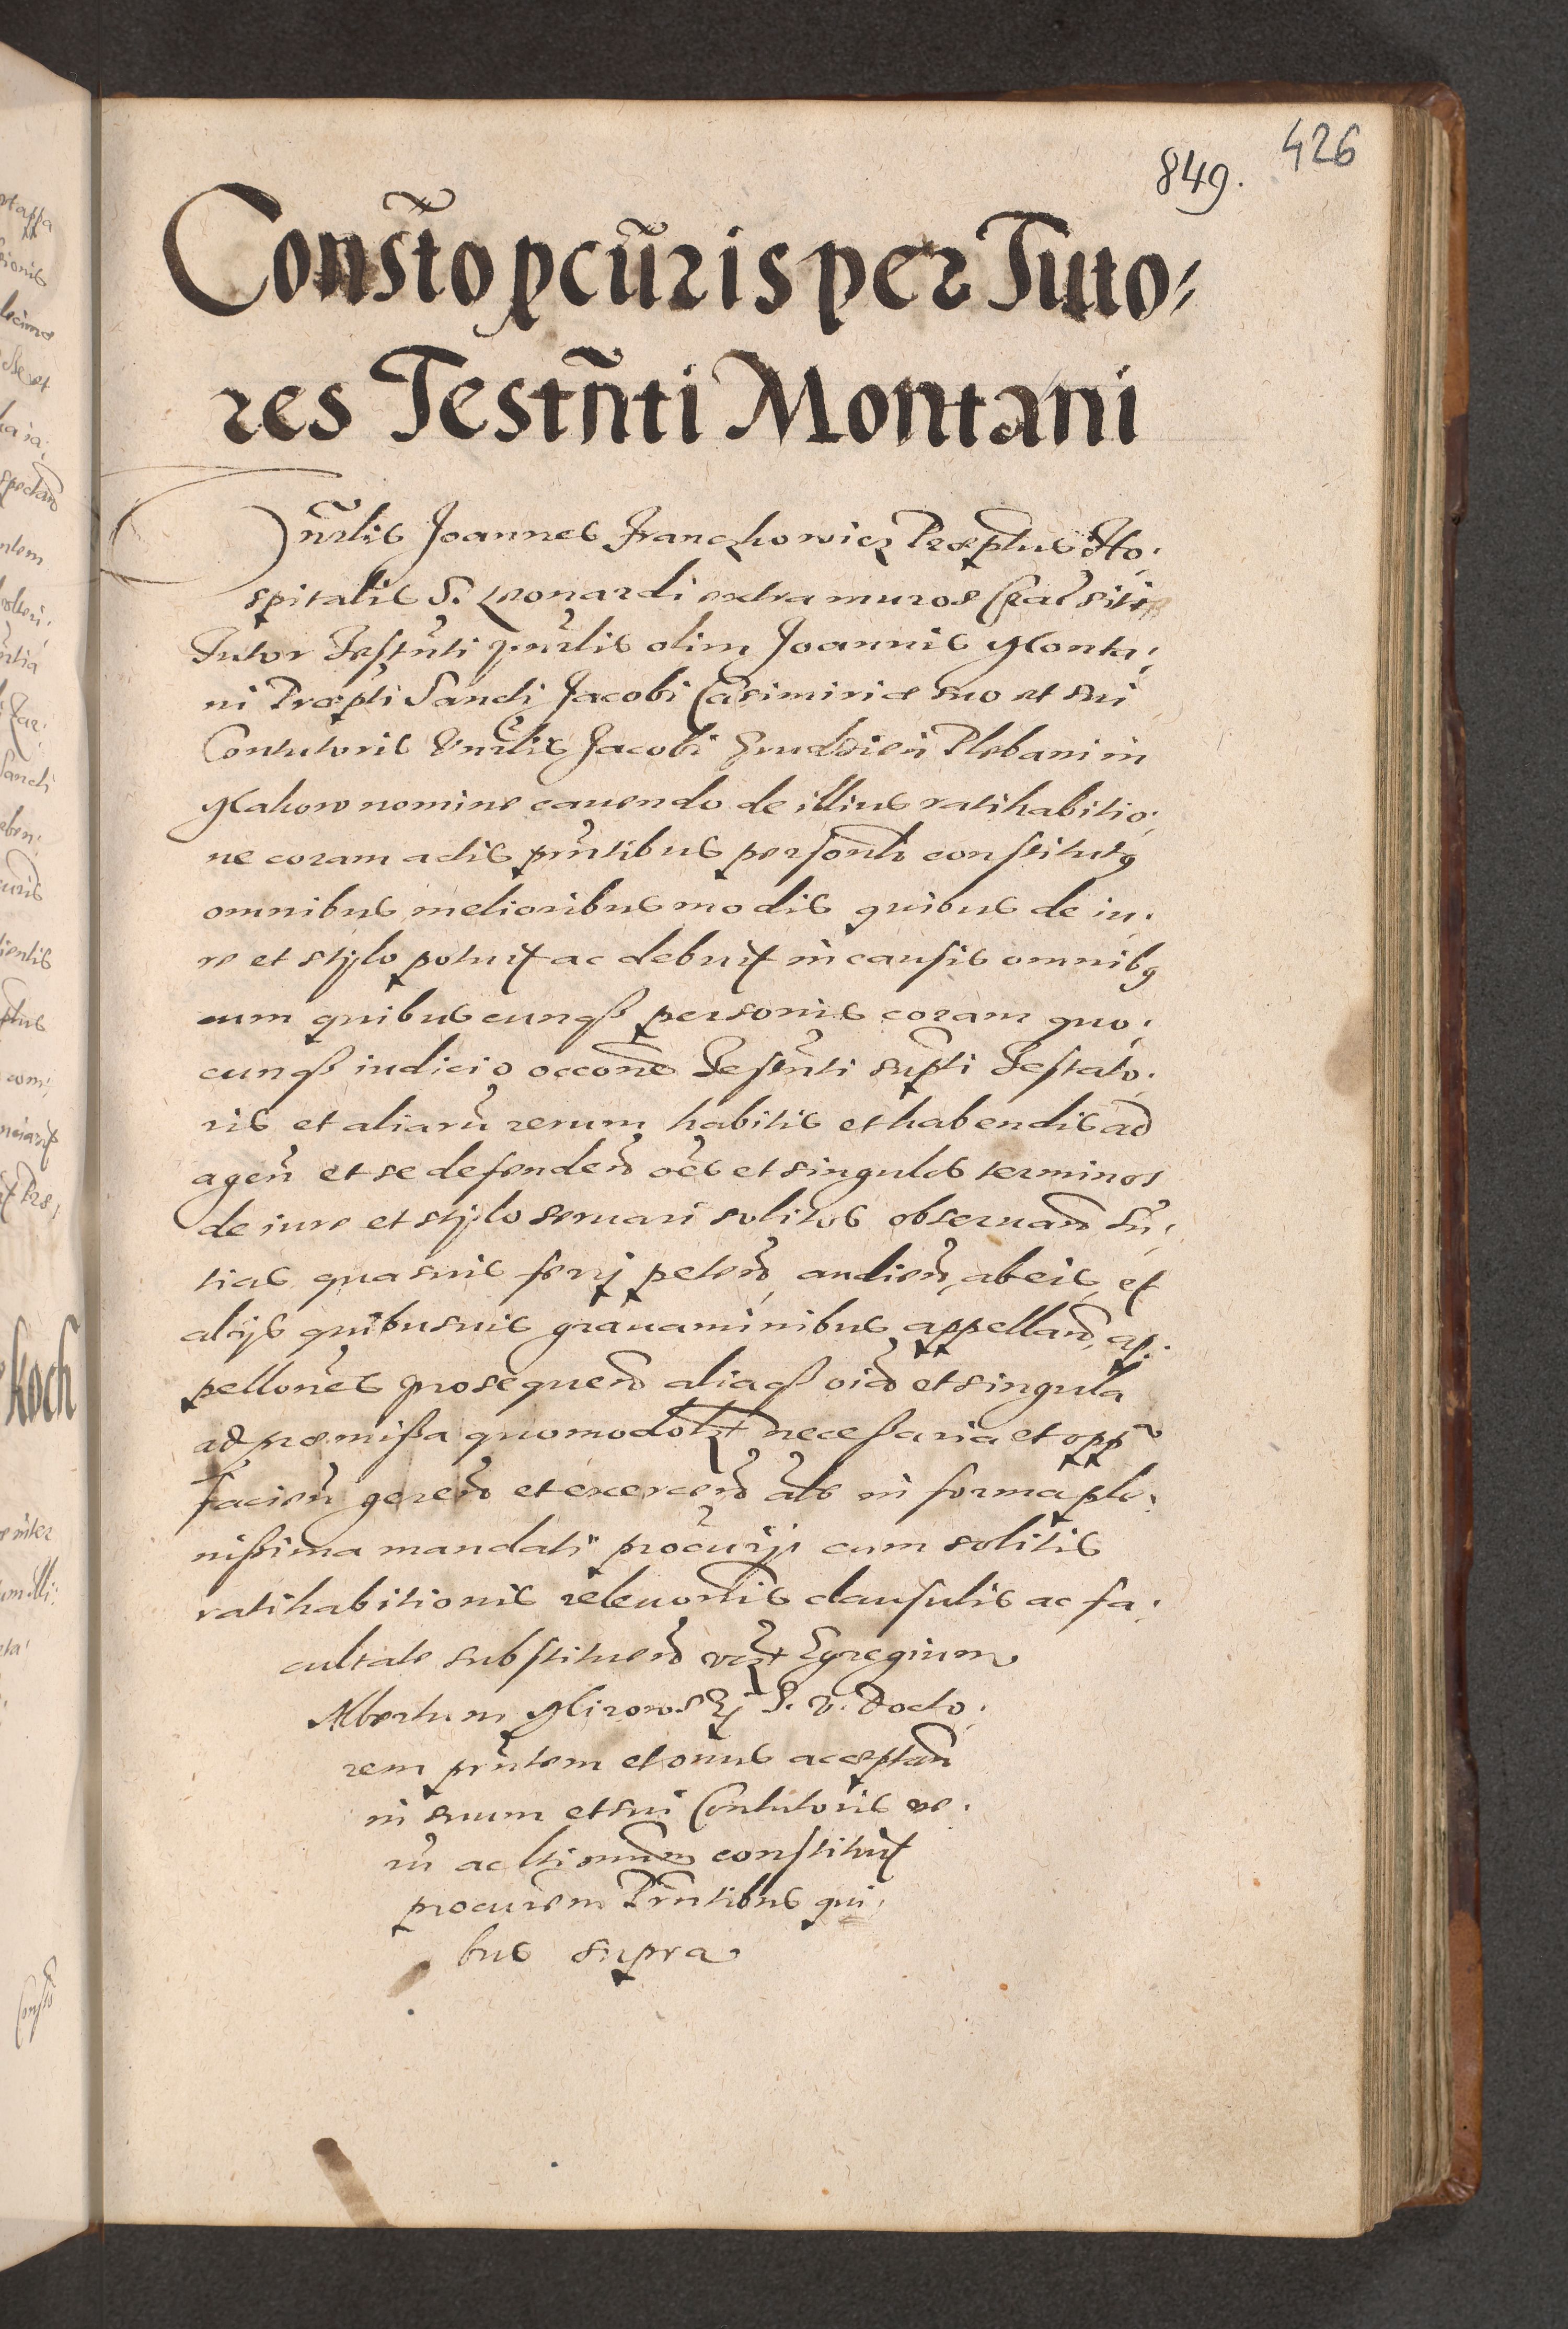 426
849.
Consto pcuris per Tuto=
res Testnti Montani
Vnrlis Joannes Franczkowicz Præptus Ho:
spitalis S. Leonardi extra muros Crac siti
Tutor Testnti Vnrlis olim Joannis Monta:
ni Præpti Sancti Jacobi Casimiriæ suo et sui
Contutoris Vnrlis Jacobi Plebani in
Makow nomine cauendo de illius ratihabitio:
ne coram actis pntibus personlr constitutus
omnibus melioribus modis quibus de iu:
re et stylo potuit ac debuit in causis omnibus
cum quibuscunqz personis coram quo:
cunqz iudicio occone Testnti supti Testato:
ris et aliaru rerum habitis et habendis ad
agen et se defenden oes et singulos terminos
de iure et stylo seruari solitos obseruand sn:
tias quasuis ferrj peten, audien, ab eis et
alijs quibusuis grauaminibus appelland, ap:
pellones prosequend aliaqz oia et singula
ad præmissa quomodolzt necessaria et opp
facien geren et exercen als in forma ple:
nissima mandati procurij cum solitis
ratihabitionis releuonis clausulis ac fa:
cultate substituend vczt Egregium
Albertum J. V. Docto:
rem pntem et onus acceptan
in suum et sui Contutoris ve:
ru ac ltimum constituit
procurem Pntibus qui:
bus supra